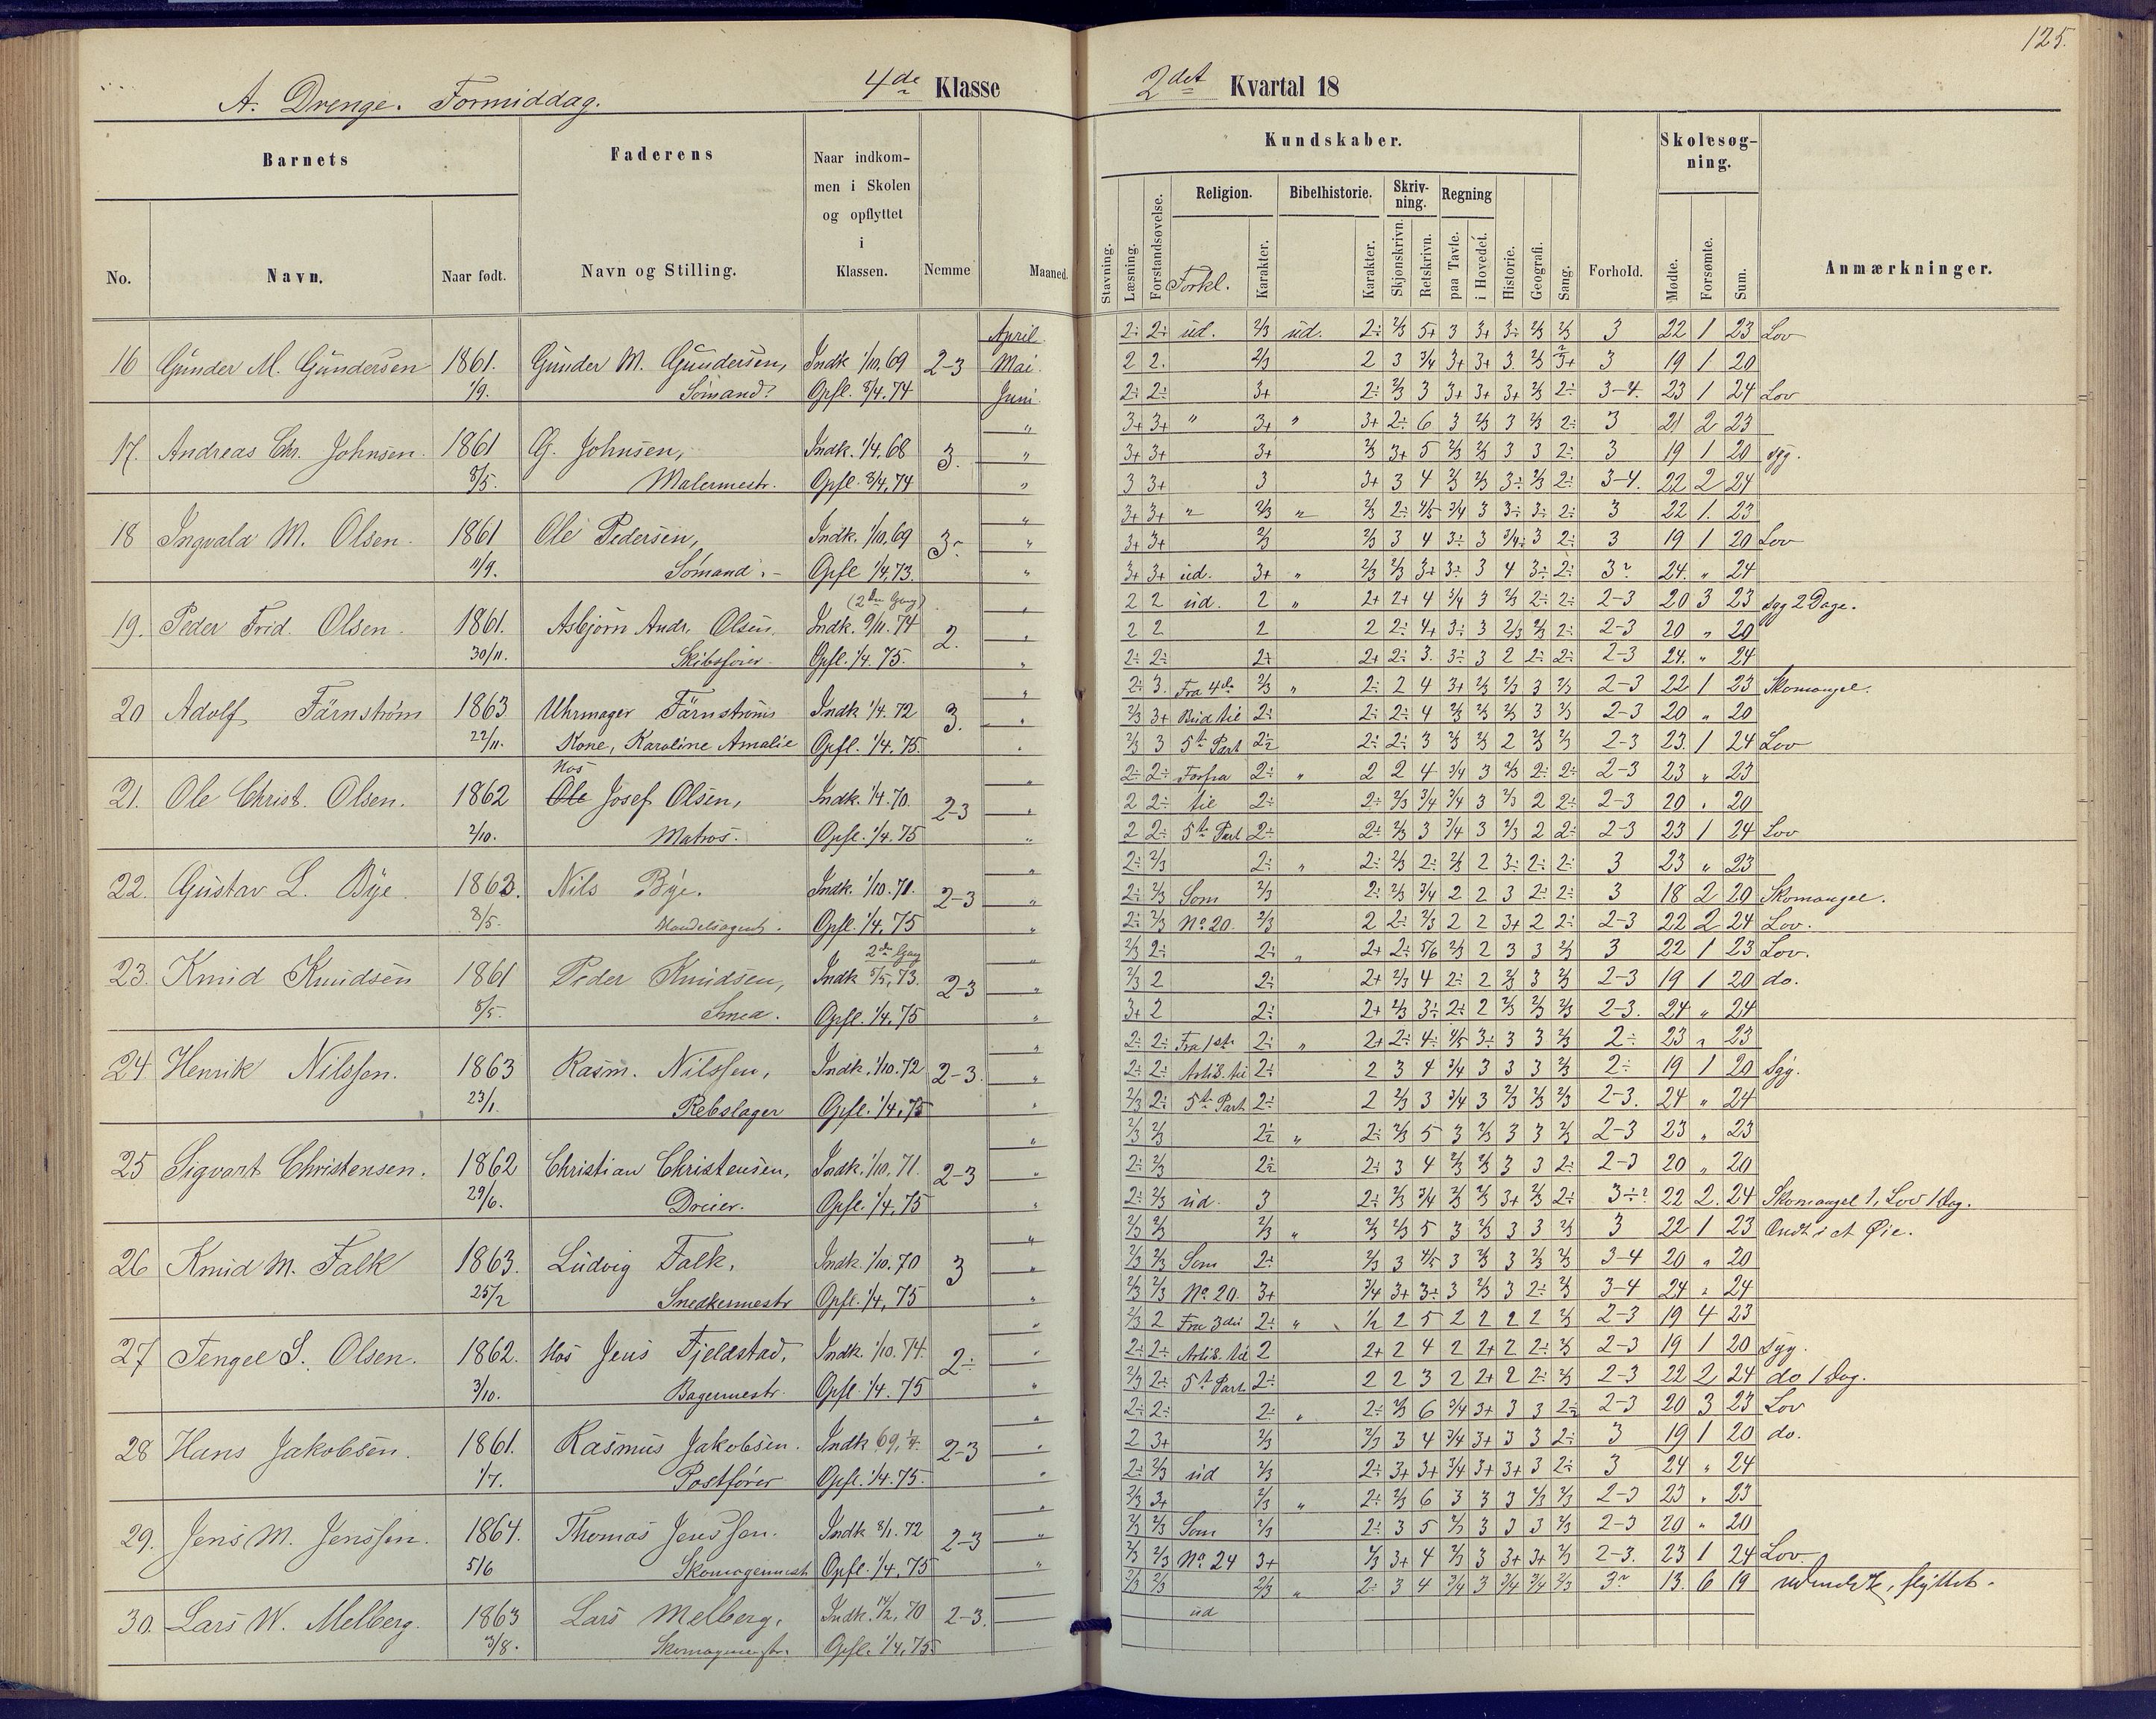 125.
A. Drenge. Formiddag.
4de Klasse
2det Kvartal 18
Barnets
Faderens
Naar indkom-
men i Skolen
og opflyttet
i
Klassen.
No.
Navn.
Naar født.
Navn og Stilling.
Nemme
Maaned.
Kundskaber.
Skolesøg-
ning.
Religion.
Bibelhistorie.
Skriv-
ning.
Regning
Stavning.
Læsning.
Forstandsøvelse.
Forkl.
Karakter.
Karakter.
Skjønskrivn.
Retskrivn.
paa Tavle.
i Hovedet.
Historie.
Geografi.
Sang.
Forhold.
Mødte.
Forsømte.
Sum.
Anmærkninger.
April 2÷ 2÷ ud. 2/3 ud. 2÷ 2/3 5+ 3 3+ 3÷ 2/3 2/3 3 22 1 23 Lov
16 Gunder M. Gundersen 1861. Gunder M. Gundersen, Indk 1/10.69 2-3 Mai. 2 2. 2/3 2 3 3/4 3+ 3+ 3. 2/3 3+ 3 19 1 20
1/9. Sømand Opfl. 8/4.74 Juni 2÷ 2÷ 3+ 2÷ 2/3 3 3+ 3+ 3+ 2/3 2÷ 3-4. 23 1 24 Lov
" 3+ 3+ " 3+ " 3+ 2÷ 6 3 2/3 3 2/3 2÷ 3 21 2 23
17. Andreas Chr. Johnsen. 1861 G. Johnsen, Indk. 1/4.68 3. " 3+ 3+ 3+ 2/3 3+ 5 2/3 2/3 3 3 2÷ 3 19 1 20 syg.
8/5. Malermestr. Opfl. 8/4.74 " 3 3+ 3 3+ 3 4 2/3 2/3 3÷ 2/3 2÷ 3-4. 22 2 24
" 3+ 3+ " 2/3 " 2/3 2÷ 4/5 3/4 3 3÷ 3÷ 2÷ 3 22 1. 23
18 Ingvald M. Olsen. 1861 Ole Pedersen, Indk. 1/10.69 3÷ " 3+ 3+ 2/3 2/3 3 4 3÷ 3 3/4÷ 3 2÷ 3 19 1 20 Lov
11/9. Sømand. Opfl 1/4.73. " 3+ 3+ ud. 3+ " 2/3 2/3 3+ 3÷ 3 4 3÷ 2÷ 3 24. " 24
(2den Gang)
" 2 2 ud. 2 " 2+ 2+ 4 3/4 3 2/3 2÷ 2÷ 2-3 20 3 23 syg 2 Dage.
19. Peder Frid. Olsen. 1861. Asbjørn Andr. Olsen. Indk. 9/11.74 2. " 2 2 2 2 2÷ 4+ 3÷ 3 2/3 2/3 2÷ 2-3 20 " 20
30/11. Skibsfører. Opfl. 1/4.75. " 2÷ 2÷ 2÷ 2+ 2÷ 3. 3÷ 3 2 2÷ 2÷ 2-3 24. " 24
" 2÷ 3. Fra 4de 2/3 " 2÷ 2 4 3+ 2/3 2/3 3 2/3 2-3 22 1 23 Skomangel.
20 Adolf Färnstrøm 1863 Uhrmager Färnstrøms Indk 1/4.72 3. " 2/3 3+ Bud til 2÷ 2÷ 2÷ 4 2/3 2/3 2/3 3 2/3 2-3 20 " 20
22/11. Kone, Karoline Amalie Opfl. 1/4.75. " 2/3 3 5te Part 2÷ 2÷ 2÷ 3 2/3 2/3 2 2/3 2/3 2-3 23. 1 24 Lov
Hos
" 2÷ 2÷ Forfra 2÷ " 2 2 4 3/4 3 2/3 2÷ 2÷ 2-3 23 " 23
21. Ole Christ. Olsen. 1862 Ole Josef Olsen, Indk. 1/4.70. 2-3 " 2 2÷ til 2÷ 2÷ 2/3 3/4 3/4 3 2/3 2 2÷ 2-3 20 " 20
2/10. Matros. Opfl. 1/4.75 " 2 2÷ 5te Part 2÷ 2÷ 2/3 3 3/4 3 2/3 2 2÷ 2-3 23 1 24 Lov
" 2÷ 2/3 2÷ " 2÷ 2/3 2÷ 2/3 2 3÷ 2÷ 2÷ 3 23 " 23
22. Gustav L. Bye. 1863. Nils Bye. Indk. 1/10.71. 2-3 " 2÷ 2/3 Som 2/3 2÷ 2/3 3/4 2 2 3 2÷ 2÷ 3 18 2 20 Skomangel.
8/5. Handelsagent. Opfl. 1/4.75 " 2÷ 2/3 No 20. 2/3 2 2÷ 2/3 2 2 3+ 2 2÷ 2-3 22 2 24 Lov.
2den Gang
" 2/3 2÷ 2÷ " 2+ 2÷ 5/6 2/3 2 3 3 2/3 3 22 1 23 Lov.
23. Knud Knudsen 1861 Peder Knudsen, Indk 5/5.73. 2-3 " 2/3 2 2÷ 2+ 2/3 4 2÷ 2 2/3 3 2/3 2-3 19 1 20 do.
8/5. Smed. Opfl. 1/4.75 " 3+ 2 2÷ 2+ 2/3 3÷ 2÷ 2 2/3 2/3 2/3 2-3. 24 " 24
" 2÷ 2÷ Fra 1ste 2÷ " 2+ 2÷ 4÷ 4/5 3÷ 3 3 2/3 2÷ 23 " 23
24 Henrik Nilssen. 1863 Rasm. Nilssen, Indk. 1/10.72 2-3. " 2÷ 2÷ Artik. til 2÷ 2 3 4 3/4 3 3 3 2/3 2÷ 19 1 20 Syg.
23/1. Rebslager Opfl. 1/4.75 " 2/3 2÷ 5te Part 2÷ 2 2/3 3 3/4 3 2/3 2/3 2/3 2-3. 24 " 24
" 2/3 2/3 2÷ " 2÷ 2/3 5 3 2/3 3 3 2/3 2-3 23 " 23
25 Sigvart Christensen. 1862 Christian Christensen, Indk. 1/10.71 2-3 " 2÷ 2/3 2÷ 2÷ 3 4 2/3 2/3 3 3 2÷ 2-3 20 " 20
29/6. Dreier. Opfl. 1/4.75 " 2÷ 2/3 ud. 3 2÷ 2/3 3/4 2/3 2/3 3+ 2/3 2÷ 3÷ 22 2. 24 Skomangel 1, Lov 1 Dag.
" 2/3 2/3 2/3 " 2/3 2/3 5 3 2/3 3 3 2/3 3 22 1 23 Ondt i et Øie.
26 Knud M. Falk 1863. Ludvig Falk, Indk. 1/10.70 3 " 2/3 2/3 Som 2÷ 2/3 3 4/5 3 2/3 3 2/3 2/3 3-4 20 " 20
25/2 Snedkermestr Opfl. 1/4.75 " 2/3 2/3 No 20. 3+ 3/4 3+ 3÷ 3 2/3 3 2÷ 2/3 3-4 24 " 24
" 2/3 2 Fra 3die 2÷ " 1/2 2 5 2 2 2 2 2/3 2-3 19 4 23
27 Tengel S. Olsen. 1862. Hos Jens Fjeldstad, Indk. 1/10.74. 2÷ " 2÷ 2÷ Artik. til 2 2+ 2 4 2 2+ 2 2÷ 2/3 2-3 19 1 20 Syg.
3/10. Bagermestr. Opfl. 1/4.75 " 2/3 2÷ 5te Part 2÷ 2 2 3 2 2+ 2 2÷ 2/3 2-3 22 2 24 do 1 Dag.
" 2÷ 2÷ 2÷ " 2÷ 2/3 6 3/4 3+ 3 3 2÷ 2-3 20 3 23 Lov
28 Hans Jakobsen. 1861. Rasmus Jakobsen. Indk 69, 1/4. 2-3 " 2 3+ 2/3 2/3 3 4 3/4 3+ 3 3 2÷ 3 19 1 20 do.
1/7. Postfører Opfl. 1/4.75. " 2÷ 2/3 ud 2/3 2÷ 3+ 3+ 3/4 3+ 3+ 3 2÷ 3 24 " 24
" 2/3 3+ 2/3 " 2÷ 2/3 6 3 3 3 2/3 2/3 2-3 23 " 23
29. Jens M. Jenssen. 1864. Thomas Jenssen. Indk 8/1.72 2-3 " 2/3 2/3 Som 2/3 2÷ 3 5 2/3 3 3 3 2/3 2-3 20 " 20
5/6 Skomagermestr Opfl. 1/4.75 " 2/3 2/3 No 24 3+ 2/3 3+ 4 2/3 3 3+ 3+ 2/3 2-3. 23 1 24 Lov.
2/3 2/3 2/3 " 2÷ 3 4 3/4 3 3/4 3/4 2/3 3 13. 6 19 flyttet.
30. Lars W. Melberg. 1863 Lars Melberg, Indk. 14/2.70 2-3. ud
3/8. Skomagermestr. Opfl. 1/4.75.